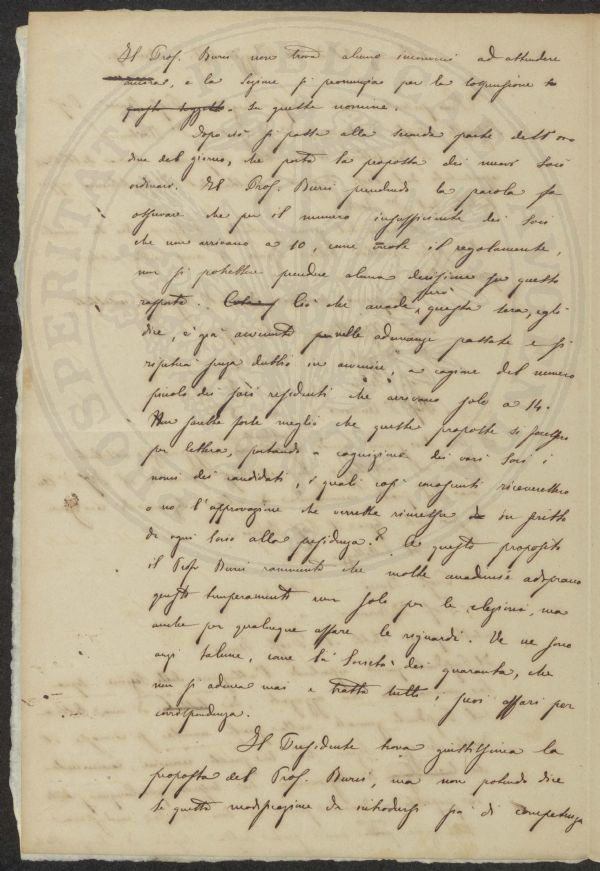 Il Prof. Bursi non trova alcun inconveni ad attendere
ancora, e la Sezione si pronunzia per la sospensione su
questo soggetto. Su queste nomine.
Dopo ciò si passa alla seconda parte dell'or
dine del giorno, che porta la proposta dei nuovi Soci
ordinari. Il Prof. Bursi prendendo la parola fa
osservare che per il numero insufficiente dei Soci
che non arrivano a 10, come vuole il regolamento,
non si potrebbe prendere alcuna decisione su questo
rapporto. Ciò che accade però questa sera, egli
dice, è già avvenuto nelle adunanze passate e si
ripeterà senza dubbio in avvenire, a cagione del numero
piccolo dei soci residenti che arrivano solo a 14.
Non sarebbe forse meglio che queste proposte si facessero
per lettera, portando a cognizione dei vari Soci i
nomi dei candidati, i quali così riceverebbero
o no l'approvazione che verrebbe rimessa in scritto
da ogni Socio alla presidenza? A questo proposito
il Prof. Bursi rammenta che molte accademie adoprano
questi temperamenti non solo per le elezioni, ma
anche per qualunque affare le riguardi. Ve ne sono
anzi talune, come la Società dei quaranta, che
non si aduna mai e tratta tutti i suoi affari per
corrispondenza.
Il Presidente trova giustissima la
proposta del Prof. Bursi, ma non potendo dire
se questa modificazione da introdursi sia di competenza